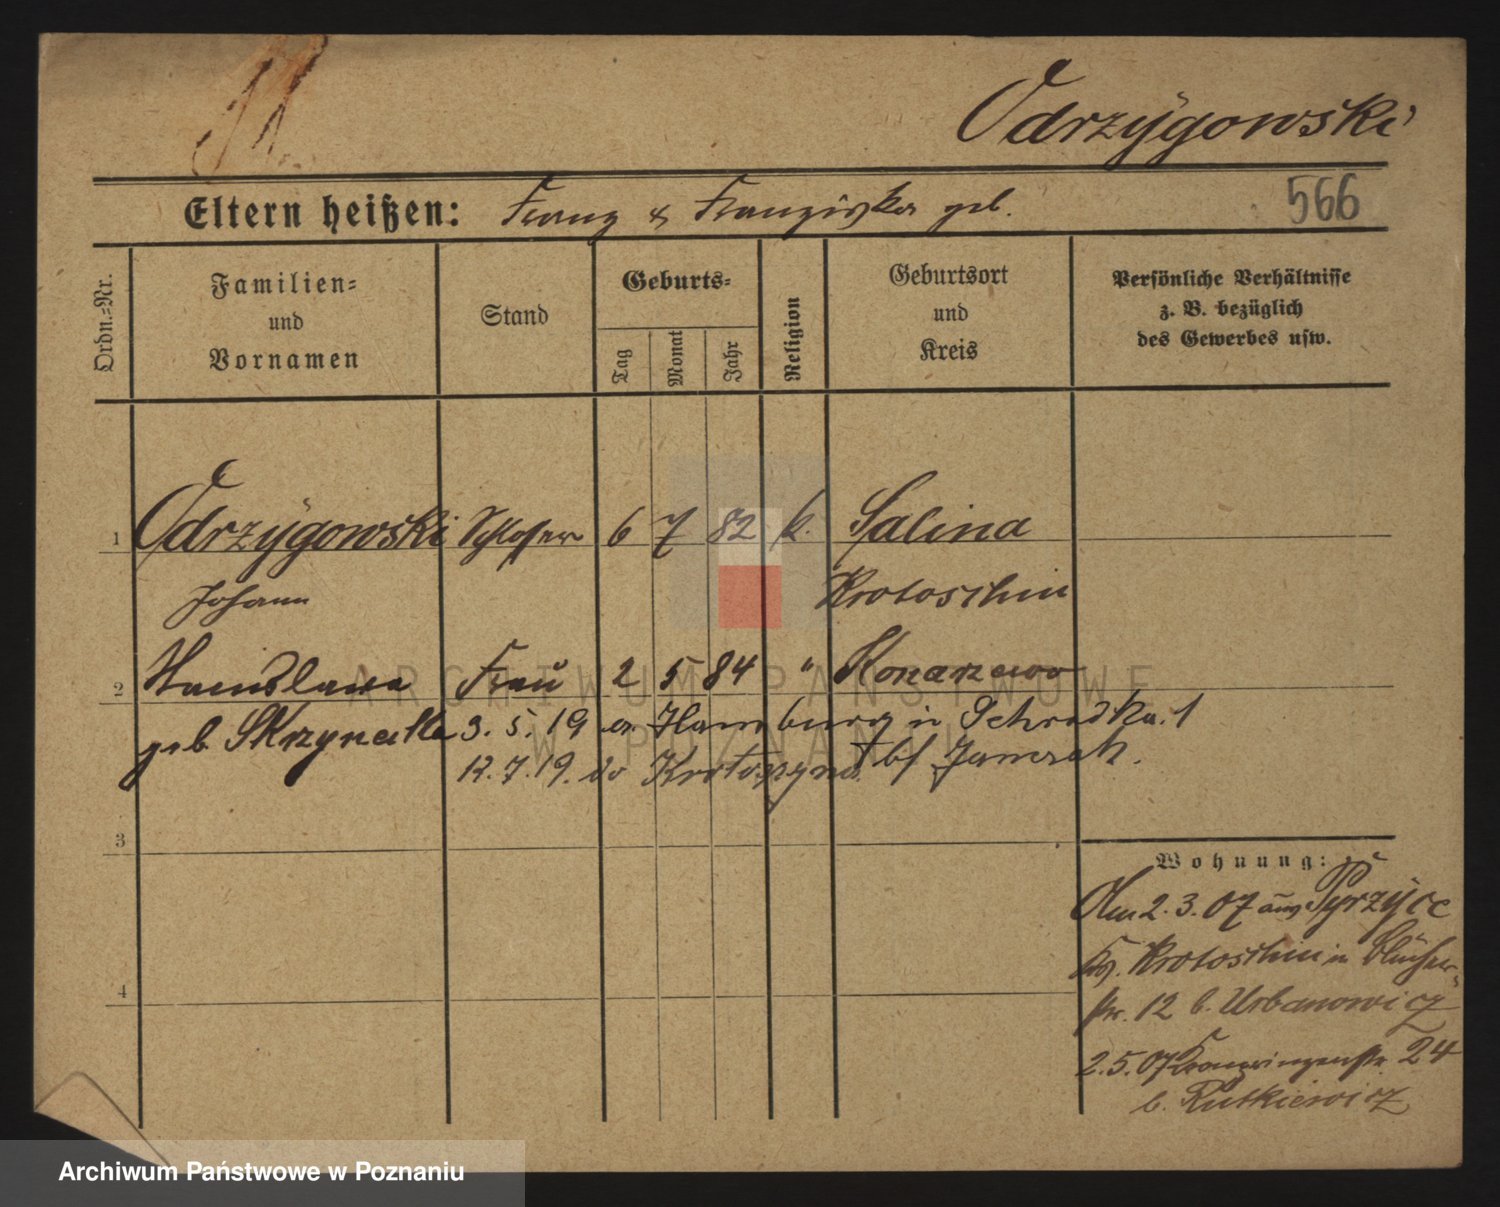 Odrzygowski
Eltern heißen: Franz & Franziska geb.
566
Ordn.=Nr.
Familien=
und
Vornamen
Stand
Geburts=
Tag
Monat
Jahr
Religion
Geburtsort
und
Kreis
Persönliche Verhältnisse
z. B. bezüglich
des Gewerbes usw.
1 Odrzygowski Schlosser 6 7 82 k. Salina
Johann Krotoschin
2 Stanislawa Frau 2 5 84 " Konarzewo
geb. Skrzypczak 3. 5. 19 a. Hamburg in Schrodka. 1
12. 7. 19. do Krotoszyna. bf
3
4
Wohnung:
Am 2. 3. 07 aus Pyrzyce
Krs. Krotoschin in Blücher-
str. 12 b. Urbanowicz
2. 5. 07 Kronprinzenstr. 24
b. Rutkiewicz
ARCHIWUM PAŃSTWOWE
W POZNANIU
Archiwum Państwowe w Poznaniu